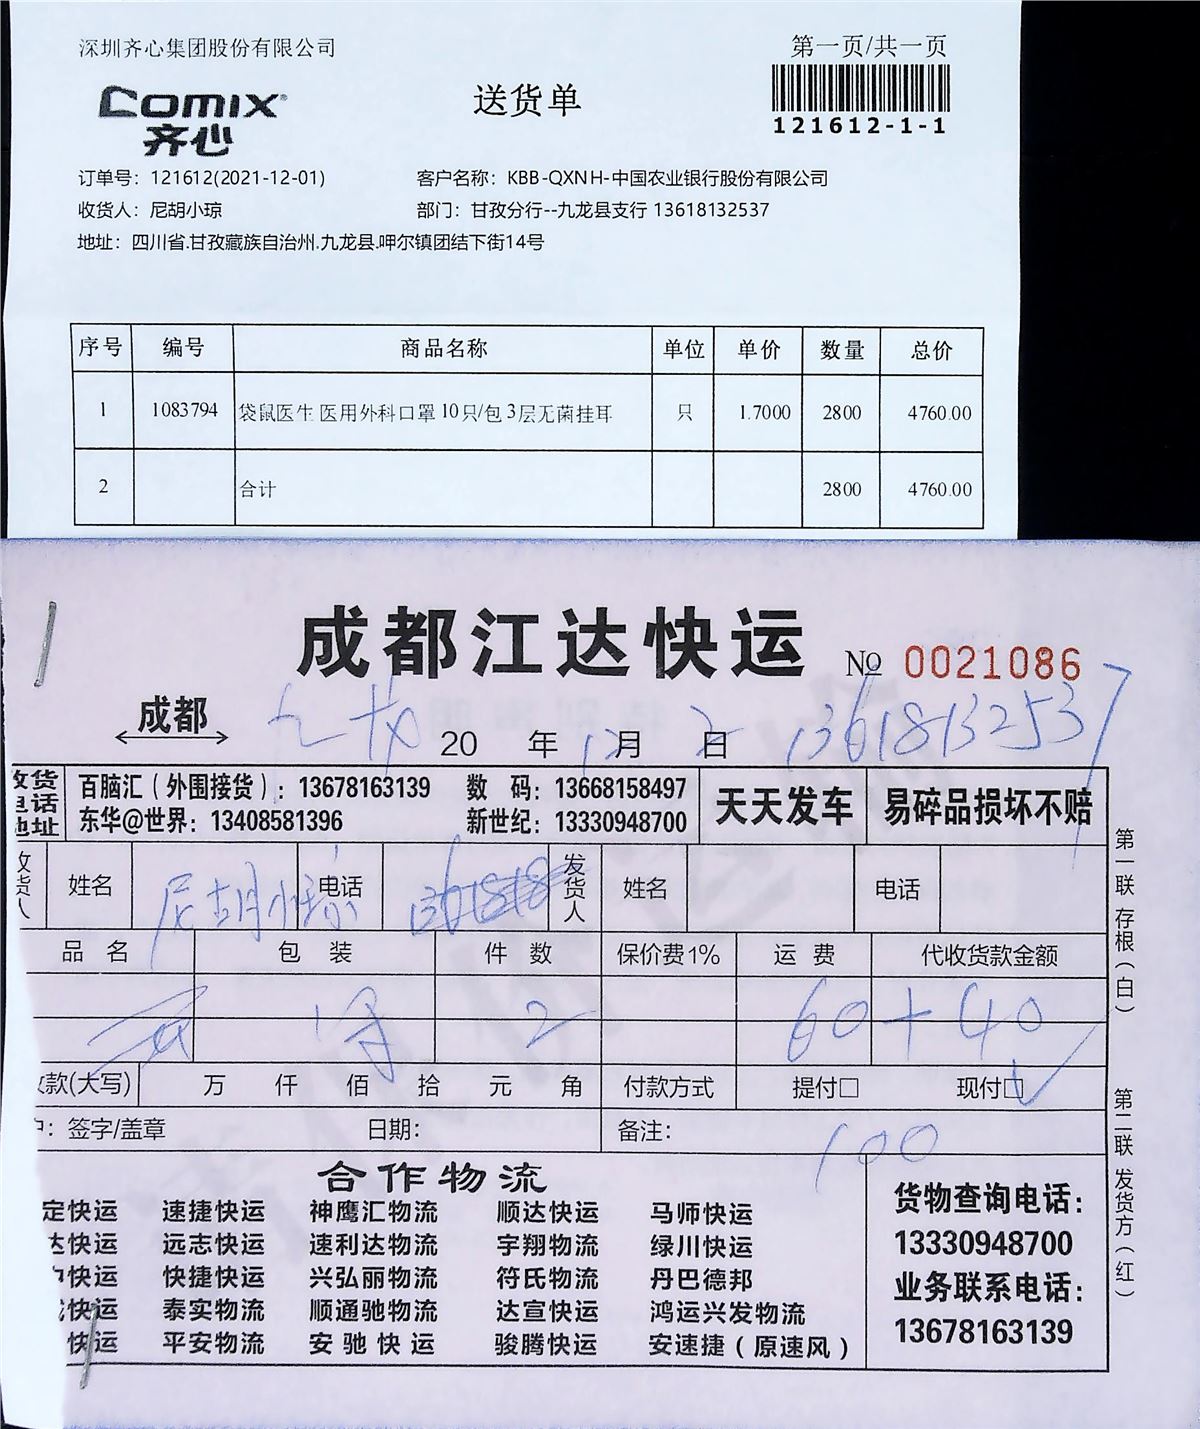 深圳齐心集团股份有限公司
第一页/共一页
COMIX
齐心
送货单
121612-1-1
订单号：121612(2021-12-01) 客户名称：KBB-QXNH-中国农业银行股份有限公司
收货人：尼胡小琼 部门：甘孜分行--九龙县支行 13618132537
地址：四川省.甘孜藏族自治州.九龙县.呷尔镇团结下街14号
序号 编号 商品名称 单位 单价 数量 总价
1 1083794 袋鼠医生 医用外科口罩 10只/包 3层无菌挂耳 只 1.7000 2800 4760.00
2 合计 2800 4760.00
成都江达快运
№ 0021086
成都 九龙 20 年 12月 2日 13618132537
收货电话地址
百脑汇（外围接货）：13678163139 数 码：13668158497
东华@世界：13408581396 新世纪：13330948700
天天发车 易碎品损坏不赔
收货人 姓名 尼胡小琼 电话 发货人 姓名 电话
品 名 包 装 件 数 保价费1% 运 费 代收货款金额
2 60+40
款(大写) 万 仟 佰 拾 元 角 付款方式 提付□ 现付□✓
：签字/盖章 日期： 备注： 100
合作物流
定快运 速捷快运 神鹰汇物流 顺达快运 马师快运
达快运 远志快运 速利达物流 宇翔物流 绿川快运
快运 快捷快运 兴弘丽物流 符氏物流 丹巴德邦
快运 泰实物流 顺通驰物流 达宣快运 鸿运兴发物流
快运 平安物流 安驰快运 骏腾快运 安速捷（原速风）
货物查询电话：
13330948700
业务联系电话：
13678163139
第一联 存根（白）
第二联 发货方（红）